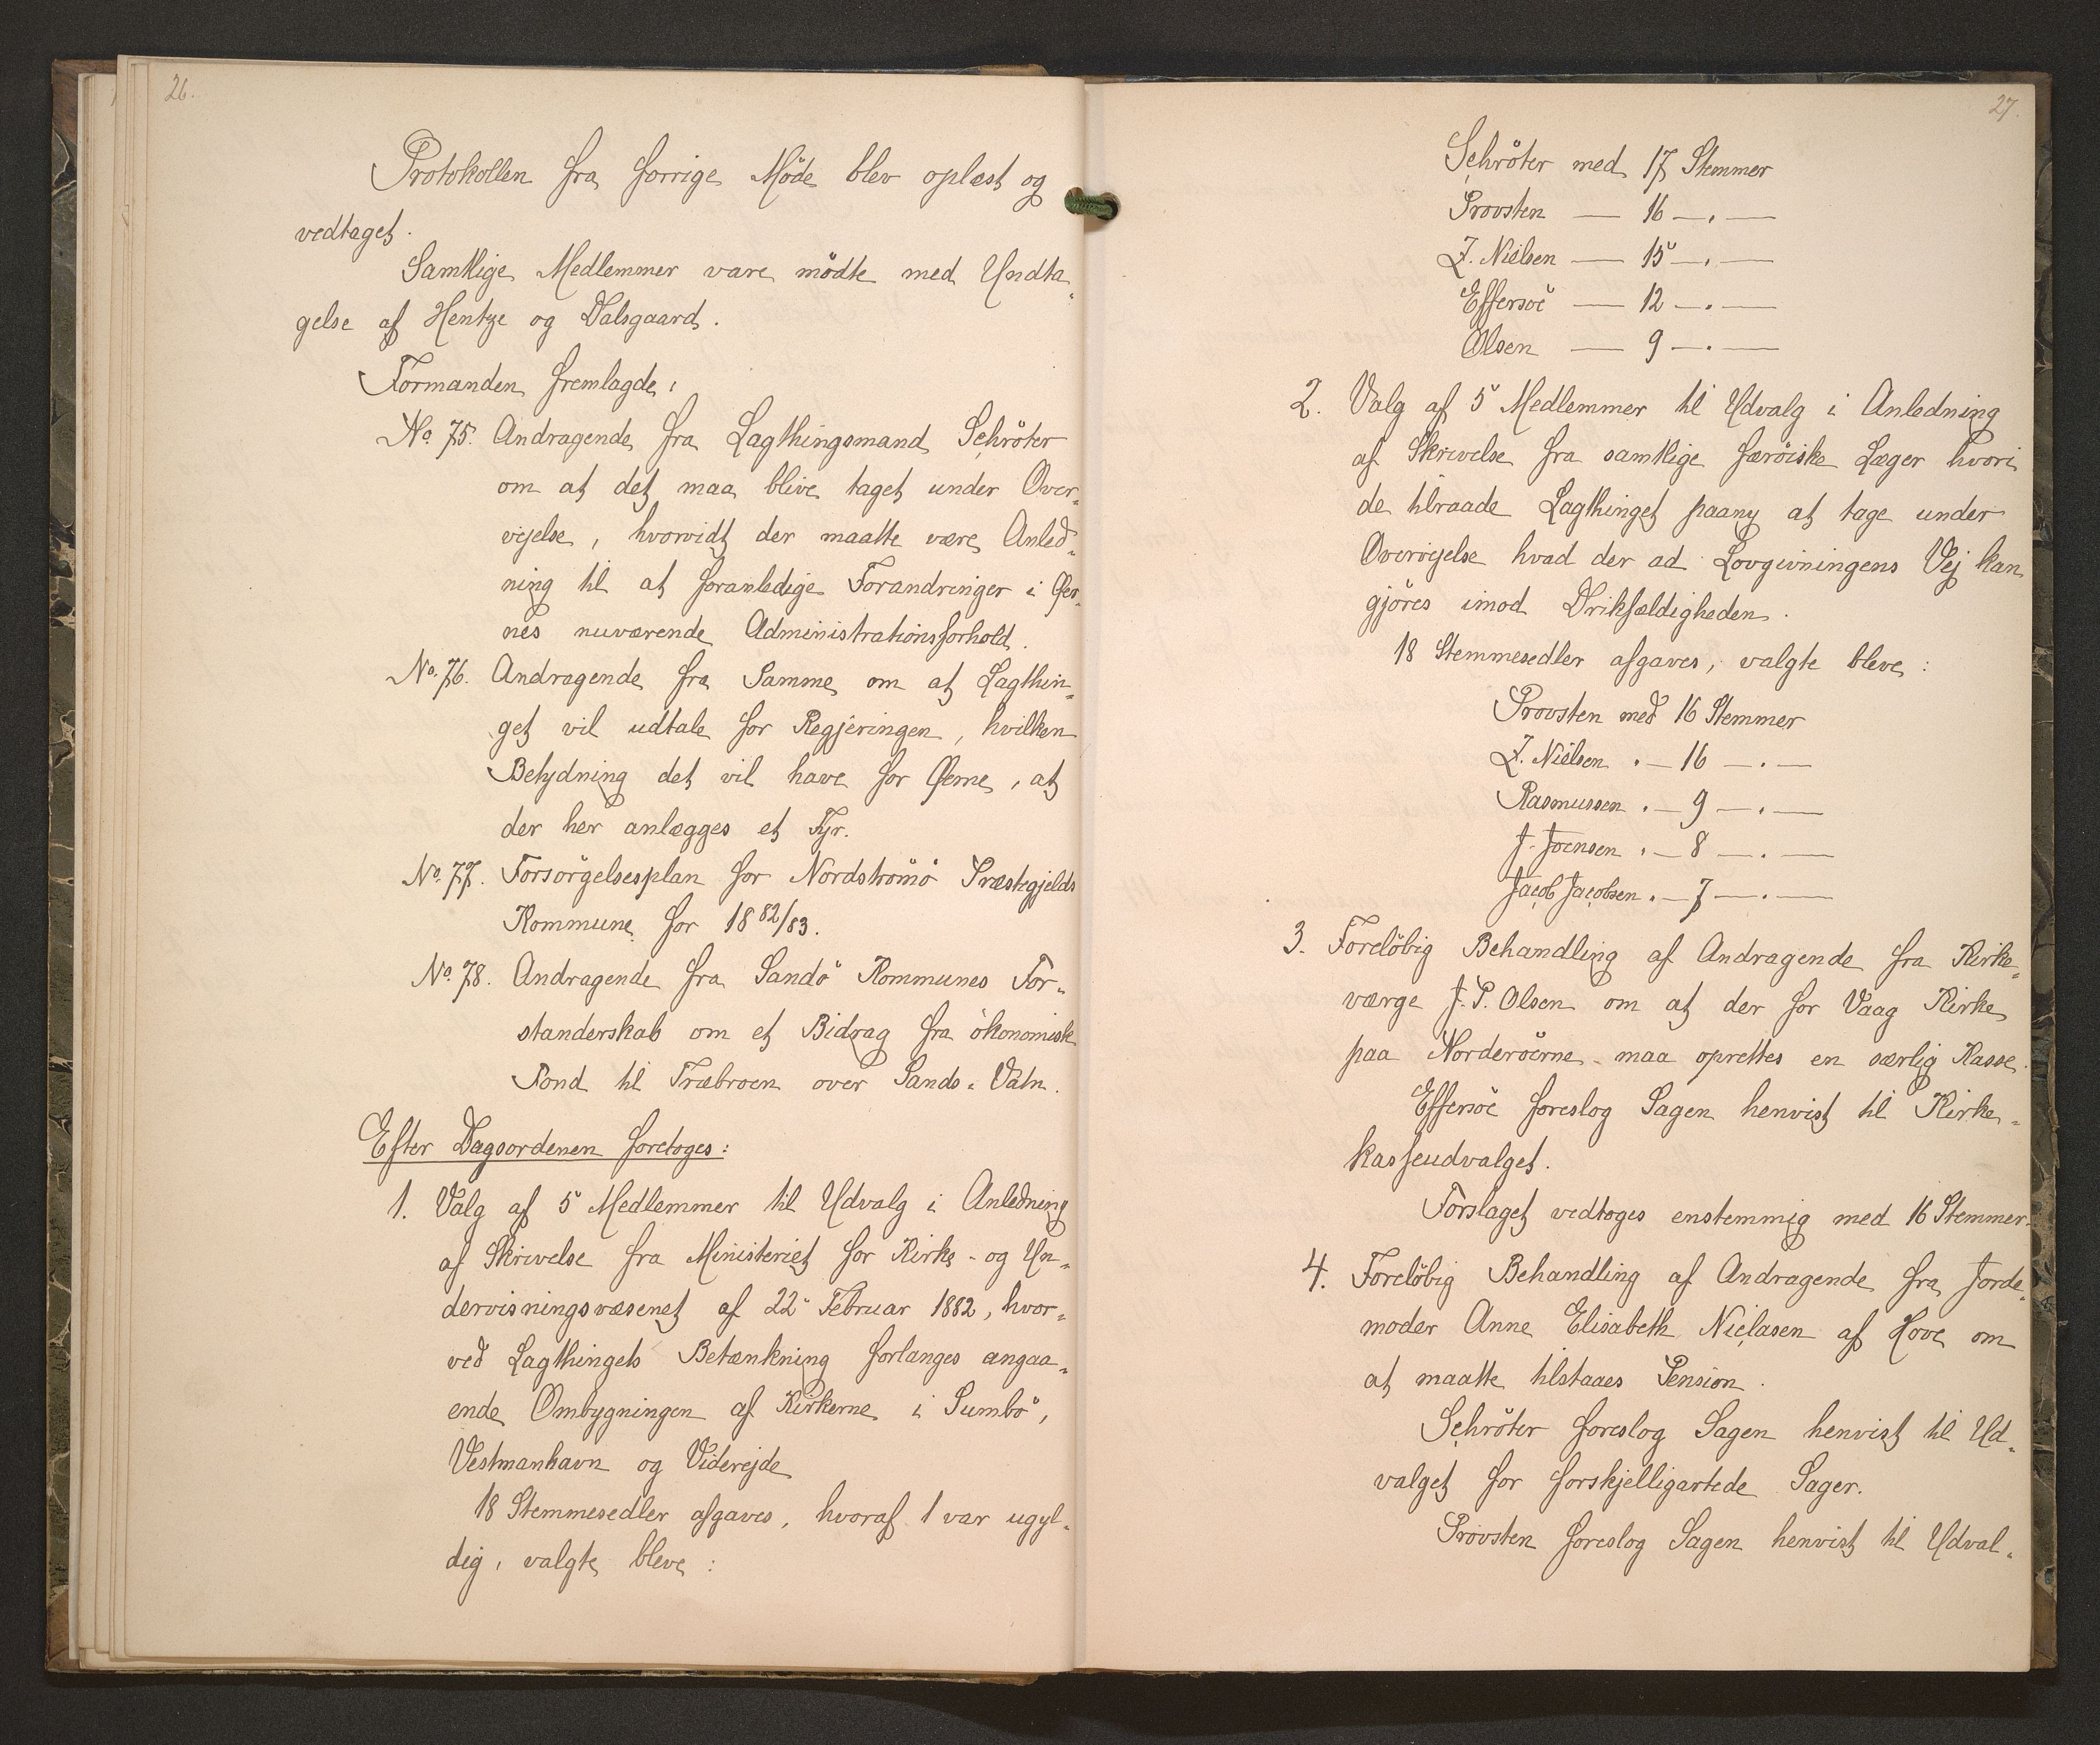 26.
Protokollen fra forrige Möde blev oplæst og
vedtaget.
Samtlige Medlemmer vare mödte med Undta„
gelse af Hentze og Dalsgaard.
Formanden fremlagde:
No. 75. Andragende fra Lagthingsmand Schröter
om at det maa blive taget under Over„
vejelse, hvorvidt der maatte være Anled„
ning til at foranledige Forandringer i Øer„
nes nuværende Administrationsforhold.
No. 76. Andragende fra Samme om at Lagthin„
get vil udtale for Regjeringen, hvilken
Betydning det vil have for Øerne, at
der her anlægges et Fyr.
No. 77. Forsörgelsesplan for Nordströmö Præstegjelds
Kommune for 1882/83.
No. 78. Andragende fra Sandö Kommunes For„
standerskab om et Bidrag fra ökonomisk
Fond til Træbroen over Sands-Vatn.
Efter Dagsordenen foretoges:
1. Valg af 5 Medlemmer til Udvalg i Anledning
af Skrivelse fra Ministeriet for Kirke- og Un„
dervisningsvæsenet af 22 Februar 1882, hvor„
ved Lagthingets Betænkning forlanges angaa„
ende Ombygningen af Kirkerne i Sumbö,
Vestmanhavn og Viderejde
18 Stemmesedler afgaves, hvoraf 1 var ugyl„
dig, valgte bleve:
27.
Schröter med 17 Stemmer
Provsten — 16 —.—
Z. Nielsen — 15 —.—
Effersöe — 12 —.—
Olsen — 9 —.—
2. Valg af 5 Medlemmer til Udvalg i Anledning
af Skrivelse fra samtlige færöiske Læger hvori
de tilraade Lagthinget paany at tage under
Overvejelse hvad der ad Lovgivningens Vej kan
gjöres imod Drikfældigheden.
18 Stemmesedler afgaves, valgte bleve:
Provsten med 16 Stemmer
Z. Nielsen . — 16 —.—
Rasmussen . — 9 —.—
J. Joensen . — 8 —.—
Jacob Jacobsen . — 7 —.—
3. Forelöbig Behandling af Andragende fra Kirke„
værge J. P. Olsen om at der for Vaag Kirke
paa Norderöerne maa oprettes en særlig Kasse.
Effersöe foreslog Sagen henvist til Kirke„
kasseudvalget.
Forslaget vedtoges enstemmig med 16 Stemmer.
4. Forelöbig Behandling af Andragende fra Jorde„
moder Anne Elisabeth Niclasen af Hove om
at maatte tilstaaes Pension.
Schröter foreslog Sagen henvist til Ud„
valget for forskjelligartede Sager.
Provsten foreslog Sagen henvist til Udval„